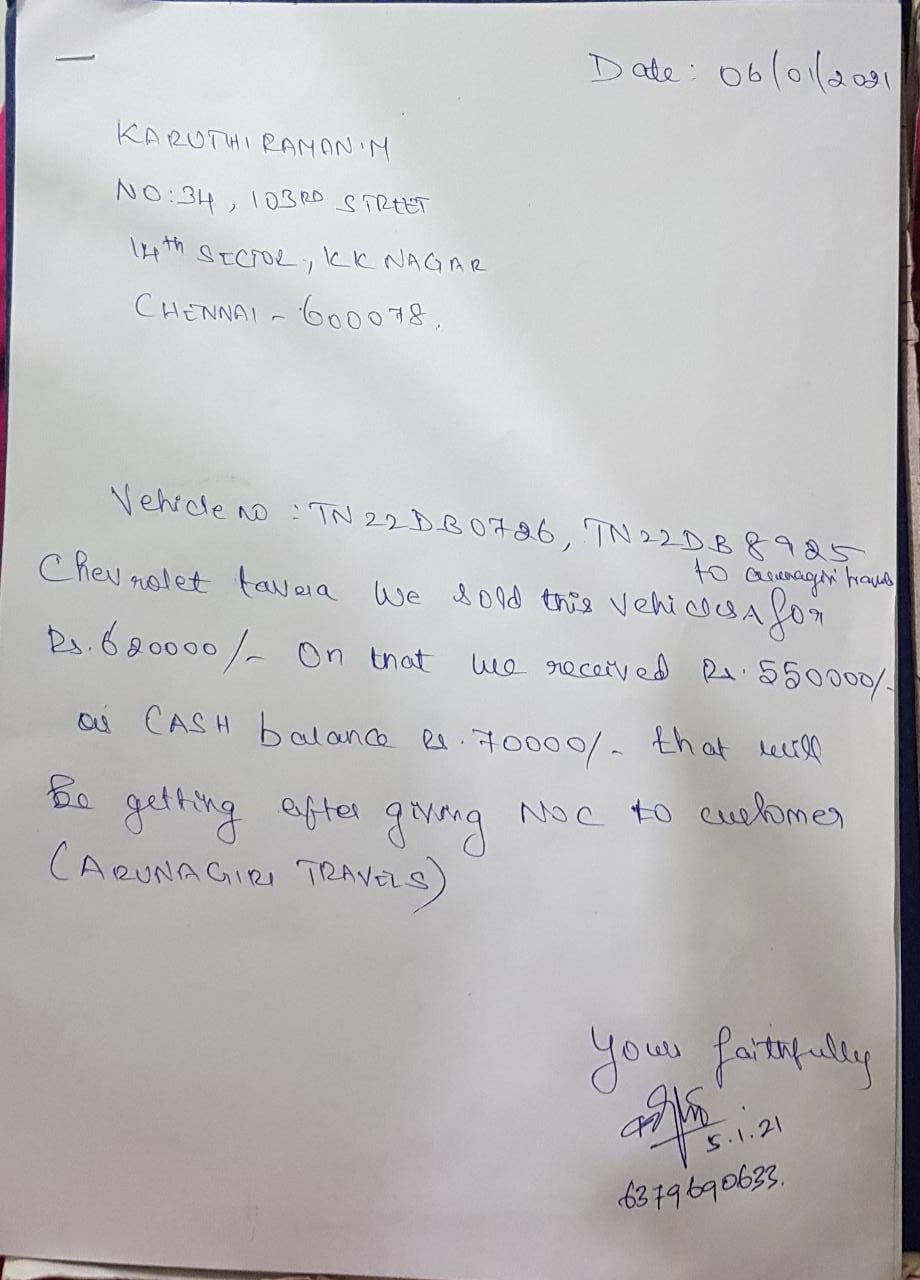 Date: 06/01/2021
KARUTHIRAMAN.M
NO:34, 103RD STREET
14th SECTOR, KK NAGAR
CHENNAI - 600078.
Vehicle no : TN22DB0726, TN22DB8925
to arunagiri travels
Chevrolet tavera we sold this vehicles for
Rs.620000/- On that we received Rs.550000/-
as CASH balance Rs.70000/- that will
be getting after giving NOC to customer
(ARUNAGIRI TRAVELS)
Yours faithfully
5.1.21
6379690633.